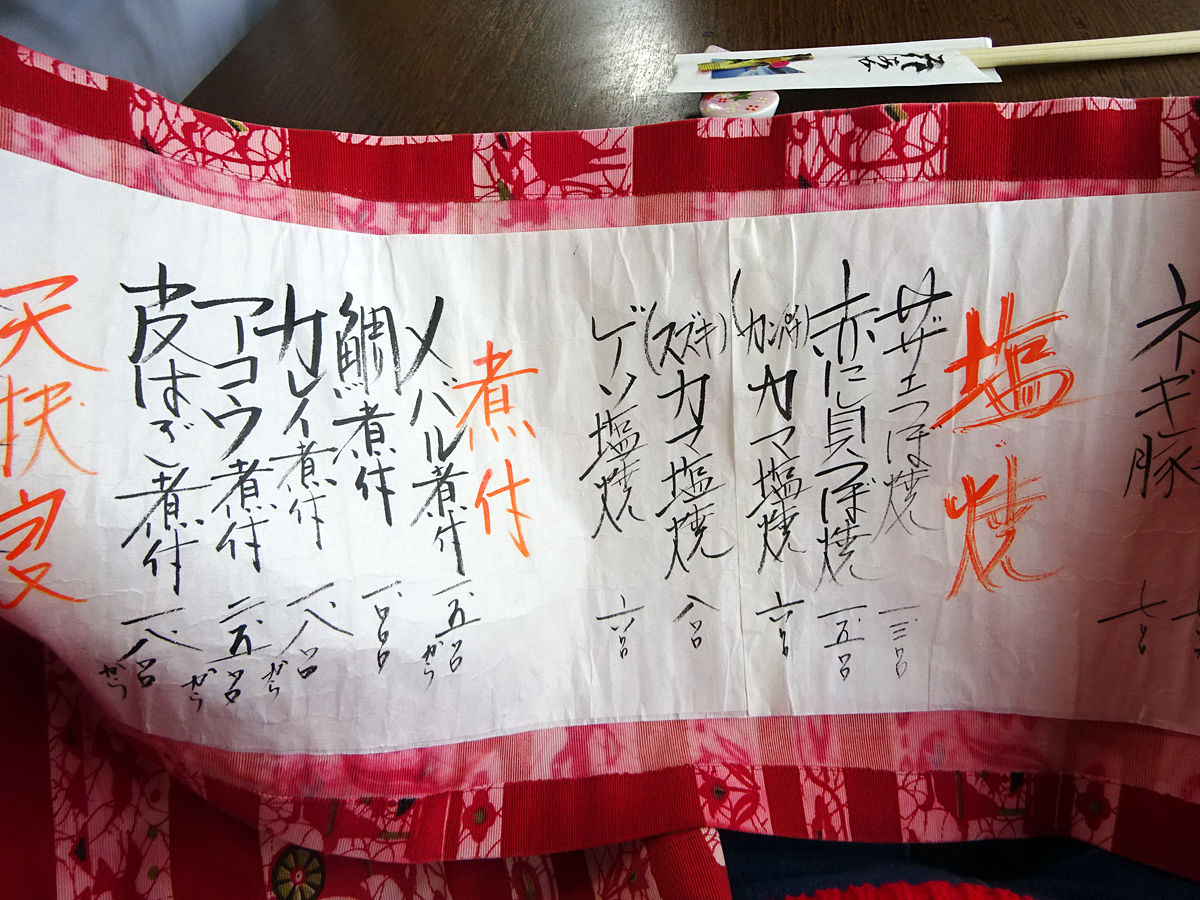 ネギ豚 七〇〇
塩焼
サザエつぼ焼 一、三〇〇
赤に貝つぼ焼 一、五〇〇
(カンパチ)カマ塩焼 六〇〇
(スズキ)カマ塩焼 八〇〇
ゲソ塩焼 六〇〇
煮付
メバル煮付 一、五〇〇から
鯛煮付 一、〇〇〇
カレイ煮付 一、八〇〇から
アコウ煮付 二、五〇〇から
皮はぎ煮付 一、八〇〇から
天扶良